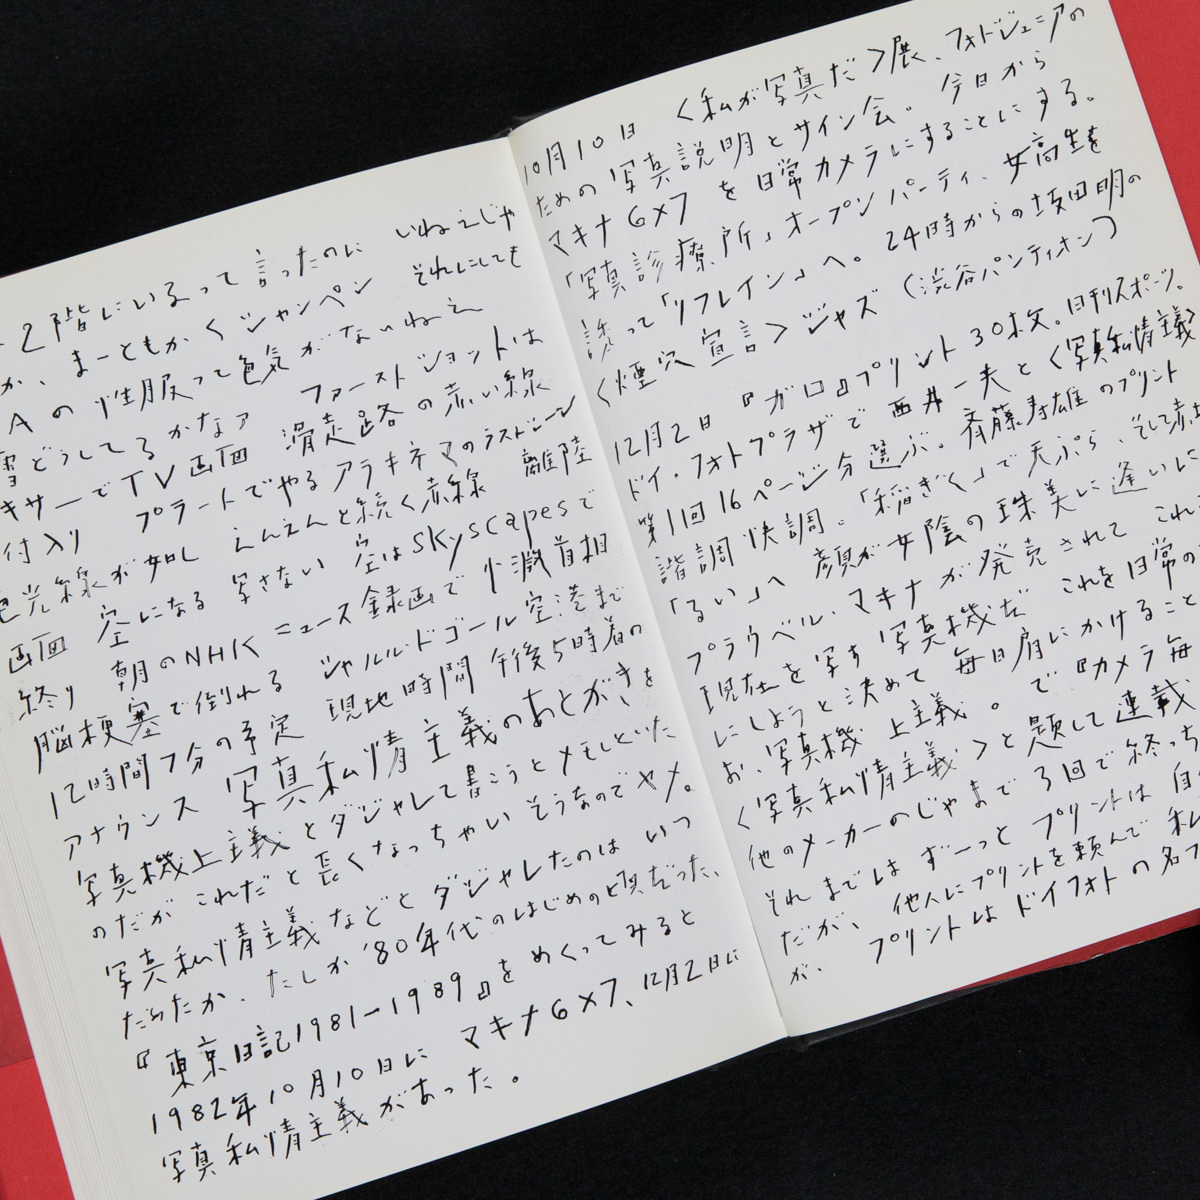 2階にいるって言ったのに いねえじゃ
か、まーともかくシャンペン それにしても
Aの性服って色気がないねえ
雪どうしてるかなァ ファーストショットは
キサーでTV画面 滑走路の赤い線
付入り プラートでやるアラキネマのラストシーン
色光線が如し えんえんと続く赤線 離陸
画面 空になる 写さない 空はskyscapesで
終り 朝のNHKニュース録画で小渕首相
脳梗塞で倒れる シャルル・ドゴール空港まで
12時間7分の予定 現地時間 午後5時着の
アナウンス 写真私情主義のあとがきを
写真機上主義とダジャレて書こうとメモしといた
のだが これだと長くなっちゃいそうなのでヤメ。
写真私情主義などとダジャレたのは いつ
だったか、たしか'80年代のはじめの頃だった、
『東京日記1981―1989』をめくってみると
1982年10月10日に マキナ6×7、12月2日に
写真私情主義があった。
10月10日 〈私が写真だ〉展、フォトジュニアの
ための写真説明とサイン会。今日から
マキナ6×7を日常カメラにすることにする。
「写真診療所」オープンパーティ、女高生を
誘って「リフレイン」へ。24時からの坂田明の
〈煙突宣言〉ジャズ(渋谷パンティオン)
12月2日『ガロ』プリント30枚。日刊スポーツ。
ドイ・フォトプラザで西井一夫と〈写真私情主義〉
第1回16ページ分選ぶ。斉藤寿雄のプリント
諧調快調。「稲ぎく」で天ぷら、そして赤
「るい」へ 顔が女陰の珠美に逢いに
プラウベル・マキナが発売されて これ
現在を写す写真機だ これを日常の
にしようと決めて毎日肩にかけること
お、写真機上主義。で『カメラ毎
〈写真私情主義〉と題して連載
他のメーカーのじゃまで3回で終っち
それまではずーっとプリントは自
だが、他人にプリントを頼んで 私
が、プリントはドイフォトの名フ